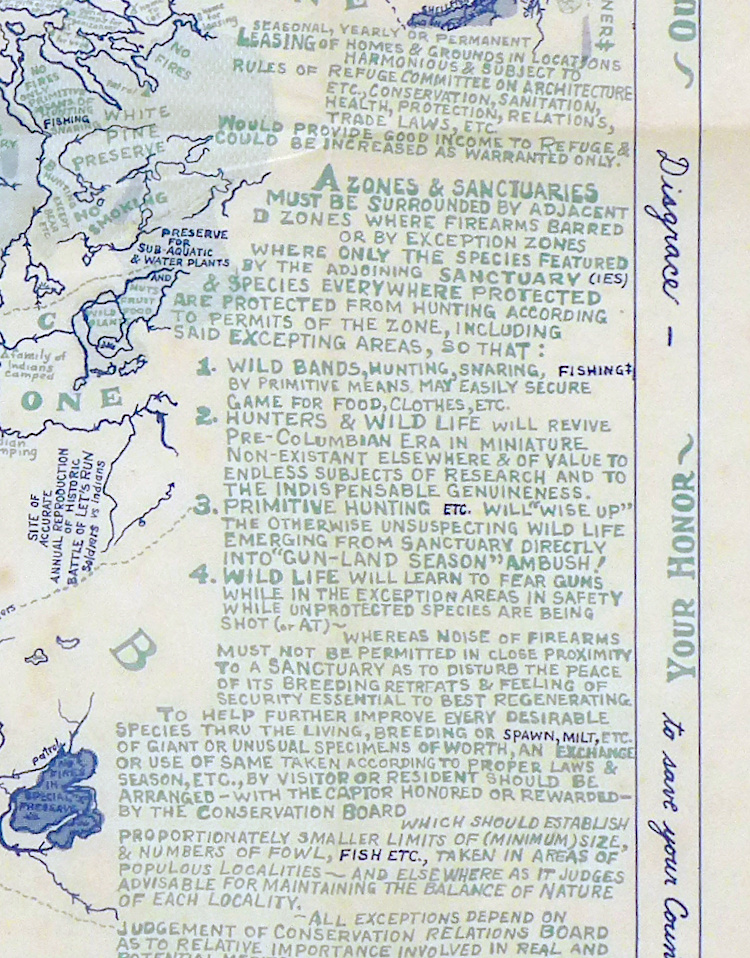 SEASONAL, YEARLY OR PERMANENT
LEASING OF HOMES & GROUNDS IN LOCATIONS
HARMONIOUS & SUBJECT TO
RULES OF REFUGE COMMITTEE ON ARCHITECTURE
ETC., CONSERVATION, SANITATION,
HEALTH, PROTECTION, RELATION'S,
TRADE LAWS, ETC.
WOULD PROVIDE GOOD INCOME TO REFUGE &
COULD BE INCREASED AS WARRANTED ONLY.
A ZONES & SANCTUARIES
MUST BE SURROUNDED BY ADJACENT
D ZONES WHERE FIREARMS BARRED
OR BY EXCEPTION ZONES
WHERE ONLY THE SPECIES FEATURED
BY THE ADJOINING SANCTUARY (IES)
& SPECIES EVERYWHERE PROTECTED
ARE PROTECTED FROM HUNTING ACCORDING
TO PERMITS OF THE ZONE, INCLUDING
SAID EXCEPTING AREAS, SO THAT:
1. WILD BANDS, HUNTING, SNARING, FISHING‡
BY PRIMITIVE MEANS MAY EASILY SECURE
GAME FOR FOOD, CLOTHES, ETC.
2. HUNTERS & WILD LIFE WILL REVIVE
PRE-COLUMBIAN ERA IN MINIATURE
NON-EXISTANT ELSEWHERE & OF VALUE TO
ENDLESS SUBJECTS OF RESEARCH AND TO
THE INDISPENSABLE GENUINENESS.
3. PRIMITIVE HUNTING ETC. WILL "WISE UP"
THE OTHERWISE UNSUSPECTING WILD LIFE
EMERGING FROM SANCTUARY DIRECTLY
INTO "GUN-LAND SEASON" AMBUSH!
4. WILD LIFE WILL LEARN TO FEAR GUNS
WHILE IN THE EXCEPTION AREAS IN SAFETY
WHILE UNPROTECTED SPECIES ARE BEING
SHOT (or AT)~
WHEREAS NOISE OF FIREARMS
MUST NOT BE PERMITTED IN CLOSE PROXIMITY
TO A SANCTUARY AS TO DISTURB THE PEACE
OF ITS BREEDING RETREATS & FEELING OF
SECURITY ESSENTIAL TO BEST REGENERATING.
TO HELP FURTHER IMPROVE EVERY DESIRABLE
SPECIES THRU THE LIVING, BREEDING OR SPAWN, MILT, ETC.
OF GIANT OR UNUSUAL SPECIMENS OF WORTH, AN EXCHANGE
OR USE OF SAME TAKEN ACCORDING TO PROPER LAWS &
SEASON, ETC., BY VISITOR OR RESIDENT SHOULD BE
ARRANGED — WITH THE CAPTOR HONORED OR REWARDED —
BY THE CONSERVATION BOARD
WHICH SHOULD ESTABLISH
PROPORTIONATELY SMALLER LIMITS OF (MINIMUM) SIZE,
& NUMBERS OF FOWL, FISH ETC., TAKEN IN AREAS OF
POPULOUS LOCALITIES ~ AND ELSEWHERE AS IT JUDGES
ADVISABLE FOR MAINTAINING THE BALANCE OF NATURE
OF EACH LOCALITY.
~ALL EXCEPTIONS DEPEND ON
JUDGEMENT OF CONSERVATION RELATIONS BOARD
AS TO RELATIVE IMPORTANCE INVOLVED IN REAL AND
NO
FIRES
NO
FIRES
FISHING
SNARING
patrol
WHITE
PINE
PRESERVE
NO
SMOKING
PRESERVE
FOR
SUB-AQUATIC
& WATER PLANTS
AND
NUTS
FRUIT
WILD FOOD
PLANT
C
A family of
Indians
camped
ONE
SITE OF
ACCURATE
ANNUAL REPRODUCTION
OF HISTORIC
BATTLE OF LET'S RUN
Soldiers vs Indians
B
patrol
NO
FIRES
IN
SPECIAL
PRESERVE
OU
~ Disgrace —
YOUR HONOR ~
to save your Coun